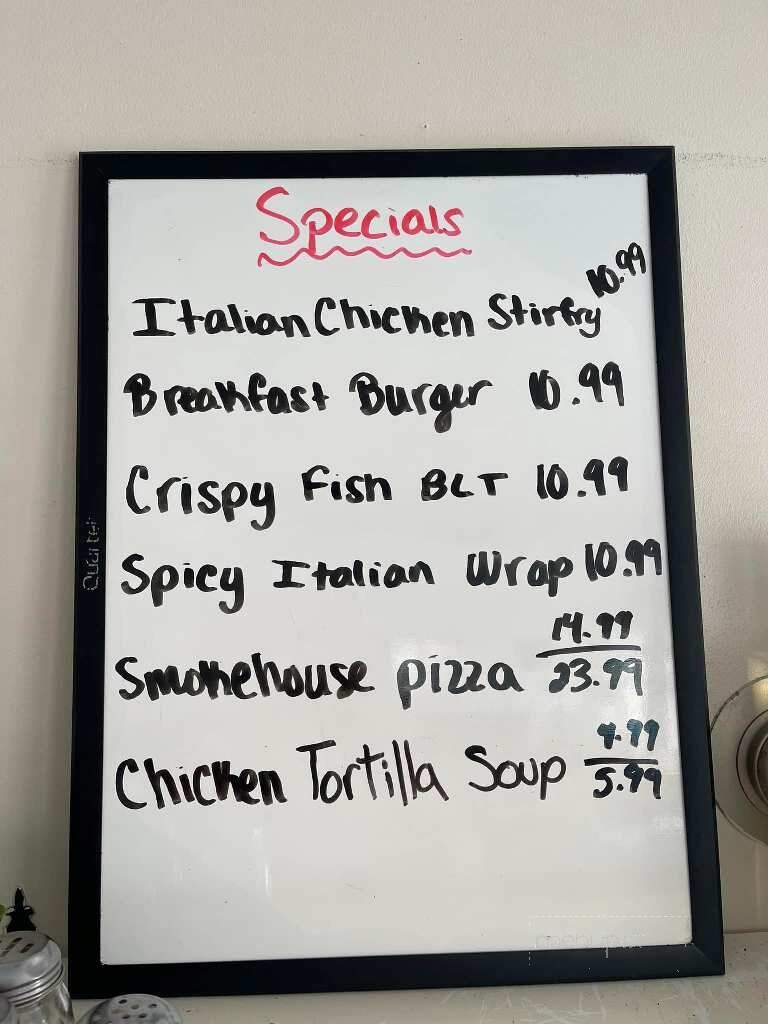 Specials
Italian Chicken Stirfry 10.99
Breakfast Burger 10.99
Crispy Fish BLT 10.99
Spicy Italian Wrap 10.99
14.99
Smokehouse pizza 23.99
4.99
Chicken Tortilla Soup 5.99
Quartet